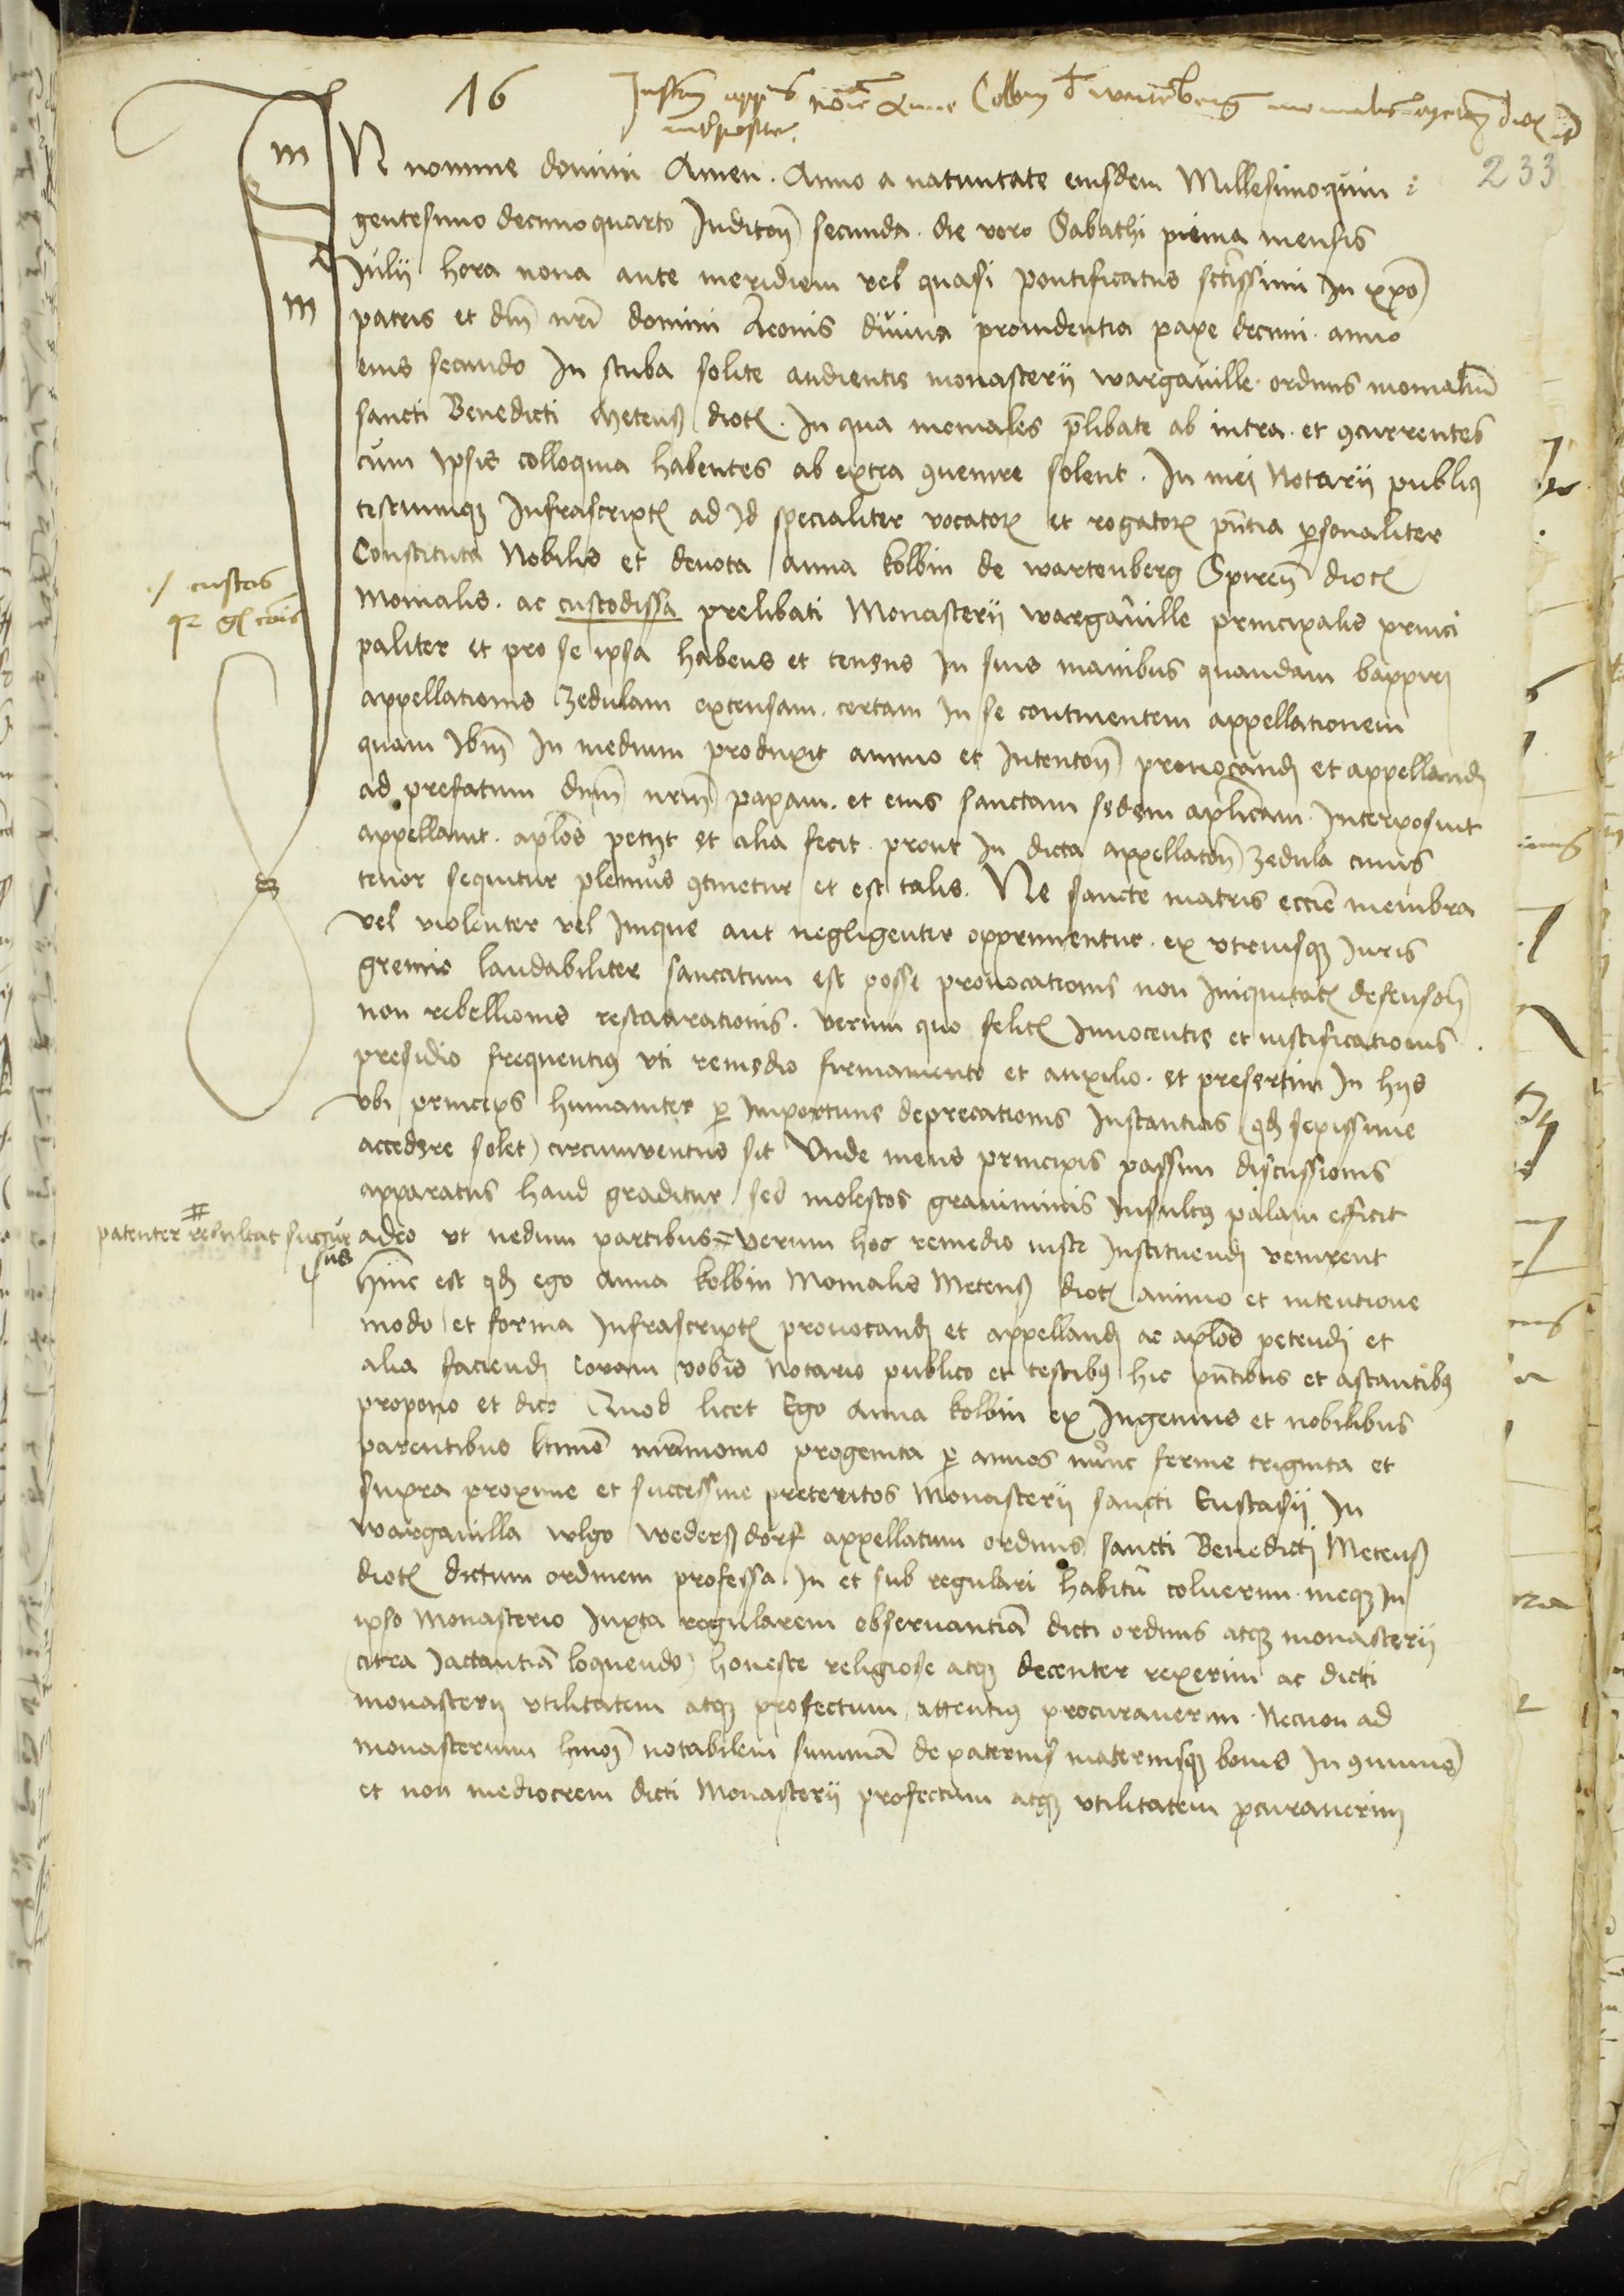 16
Instrm app̄nis noīe Anne Colbin d wartēberg monialis dioc
interposite
233
IN nomine domini Amen. Anno a natiuitate eiusdem Millesimoquin
gentesimo decimoquarto Inditōn) secunda. die vero Sabathi prima mensis
Julij hora nona ante meridiem vel quasi pontificatus sctīssimi In xp̄o
patris et dn̄i nr̄i domini Leonis diuina prouidentia pape decimi. anno
eius secundo In stuba solite audientie monasterij wargauille ordinis monialiū
sancti Benedicti Metenß dioc). In qua moniales p̄libate ab intra. et 9currentes
cum ipsis colloquia habentes ab extra 9uenire solent. In mei Notarij publici
testiumqꝫ Infrascript) ad Id specialiter vocatoꝝ et rogatoꝝ pn̄tia personaliter
Constituta Nobilis et deuota Anna kolbin de wartenberg Spiren̄ dioc)
Monialis. ac custodissa prelibati Monasterij wargauille principalis princi
./ custos
paliter et pro se ipsa habens et tenens In suis manibus quandam bappiri
appellationis zedulam extensam. certam In se continentem appellationem
quam Ibm̄ In medium produxit animo et Intentōn) prouocandi et appellandi
ad prefatum dnm̄ nrm̄ papam. et eius sanctam sedem aplicam̄. Interposuit
appellauit. aplōs petijt et alia fecit. prout In dicta appellatōn) zedula cuius
tenor sequitur plenius 9tinetur et est talis. Ne sancte matris eccīe membra
vel violenter vel Inique aut negligenter opprimentur. ex vtriusqꝫ Juris
gremio laudabiliter sanccitum est posse prouocationis non Iniquitatꝭ defensōn)
non rebellionis restaurationis. verum quo felicꝭ Innocentie et iustificationis
presidio frequentiꝰ vti remedio firmamento et auxilio. et presertim In hijs
vbi princeps humaniter p importune deprecationis Instantias (qd sepissime
accedere solet) circumuentus sit Vnde mens principis passim discussionis
apparatus haud graditur sed molestos grauiminis Insultꝰ palam efficit
patenter resultat singur
sus
adeo vt nedum partibus # verum hoc remedio iuste Instituendi venirent
Hinc est qd ego Anna kolbin Monialis Metenß dioc) animo et intentione
modo et forma Infrascript) prouocandi et appellandi ac aplōs petendi et
alia faciendi Coram vobis Notario publico et testibꝰ hic pn̄tibus et astantibꝰ
propono et dico Quod licet Ego Anna kolbin ex Ingenuis et nobilibus
parentibus ltimō mr̄imonio progenita p annos nunc ferme triginta et
supra proxime et successiue preteritos Monasterij sancti Eustasij In
wargauilla wlgo wederßdorf appellatum ordinis sancti Benedicti Metenß
dioc) dictum ordinem professa. In et sub regulari habitu coluerim. meqꝫ In
ipso Monasterio Iuxta regularem obseruantiā dicti ordinis atqꝫ monasterij
(citra Jactantiā loquendo) honeste religiose atqꝫ decenter rexerim ac dicti
monasterij vtilitatem atqꝫ profectum attentiꝰ procurauerim. Necnon ad
monasterium hmōi notabilem summā de paternis maternisqꝫ bonis In 9munē
et non mediocrem dicti Monasterij profectum atqꝫ vtilitatem procurauerim